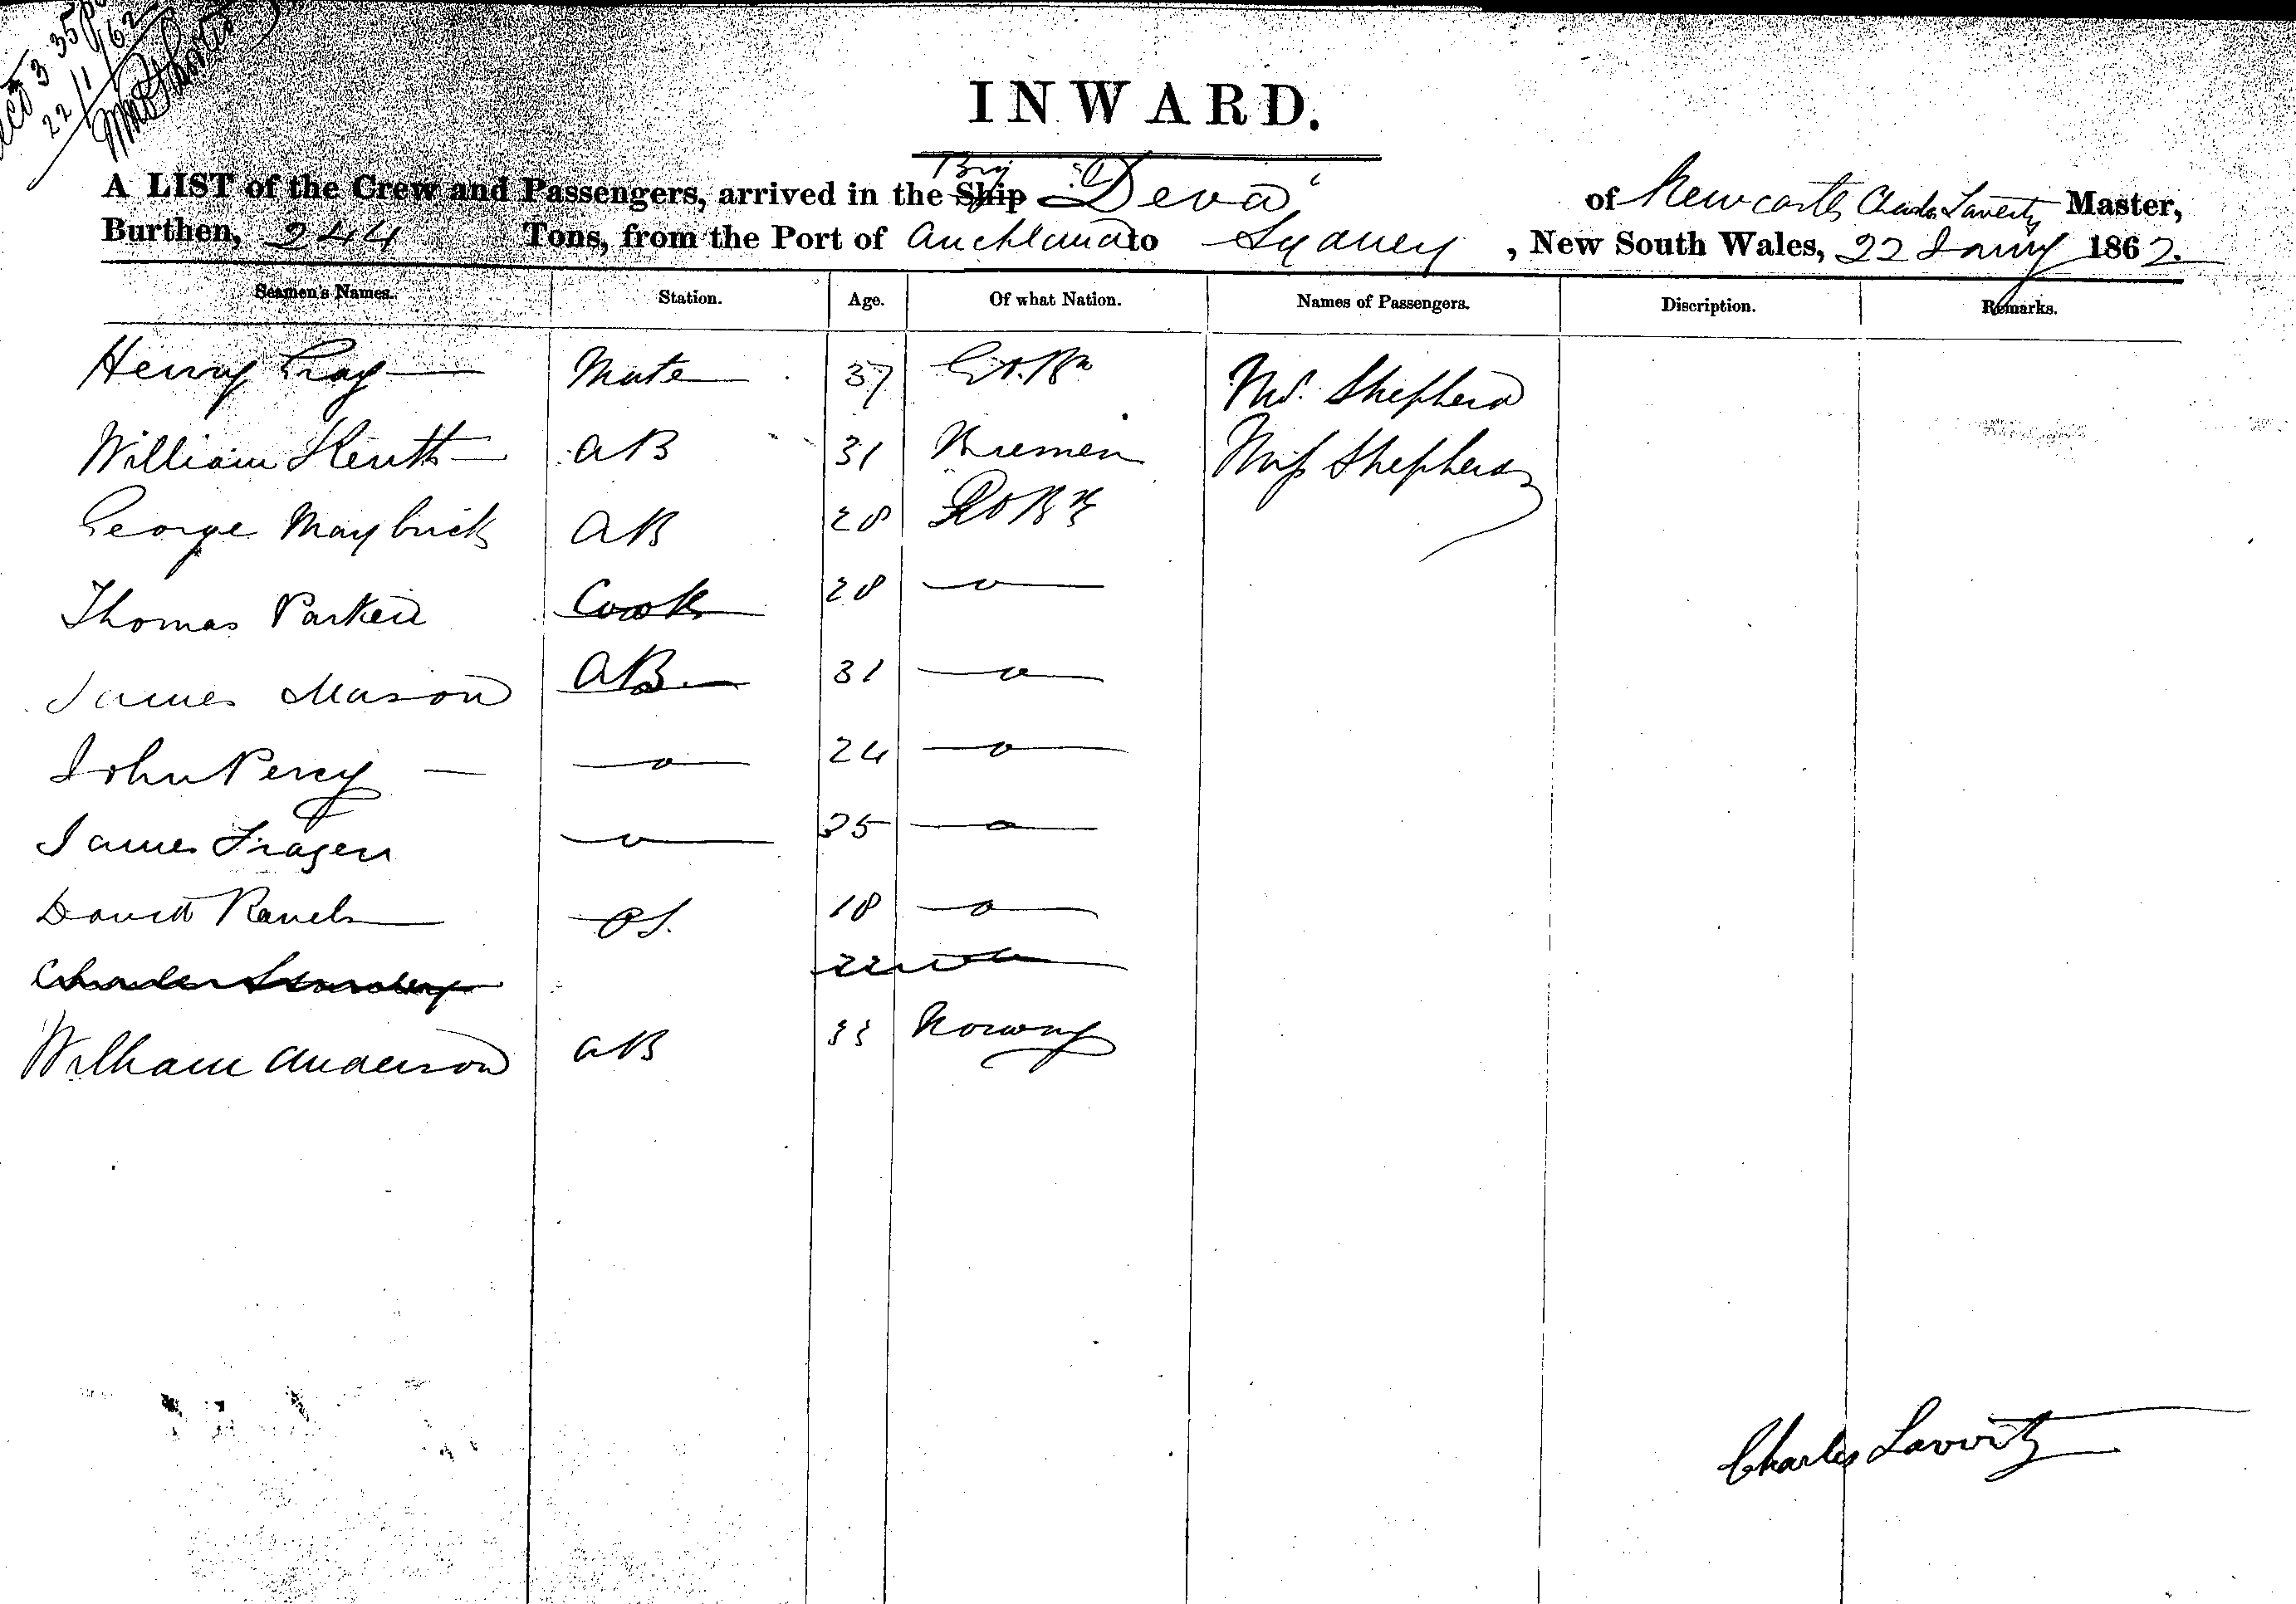 3 35
22/1/62
INWARD.
Brig
A LIST of the Crew and Passengers, arrived in the Ship "Deva" of Newcastle Charles Laverty Master,
Burthen, 244 Tons, from the Port of Auckland to Sydney, New South Wales, 22 Jany 1862.
Seamen's Names. Station. Age. Of what Nation. Names of Passengers. Discription. Remarks.
Henry Gray Mate 37 Gt. Bn Mr. Shepherd
William AB 31 Bremen Miss Shepherd
George Maybrick AB 28 Gt Bn
Thomas Parker Cook 28 —o—
James Mason AB 31 —o—
John Percy —o— 24 —o—
James Frazer —o— 25 —o—
David OS. 18 —o—
Charles
William Anderson AB 33 Norway
Charles Laverty